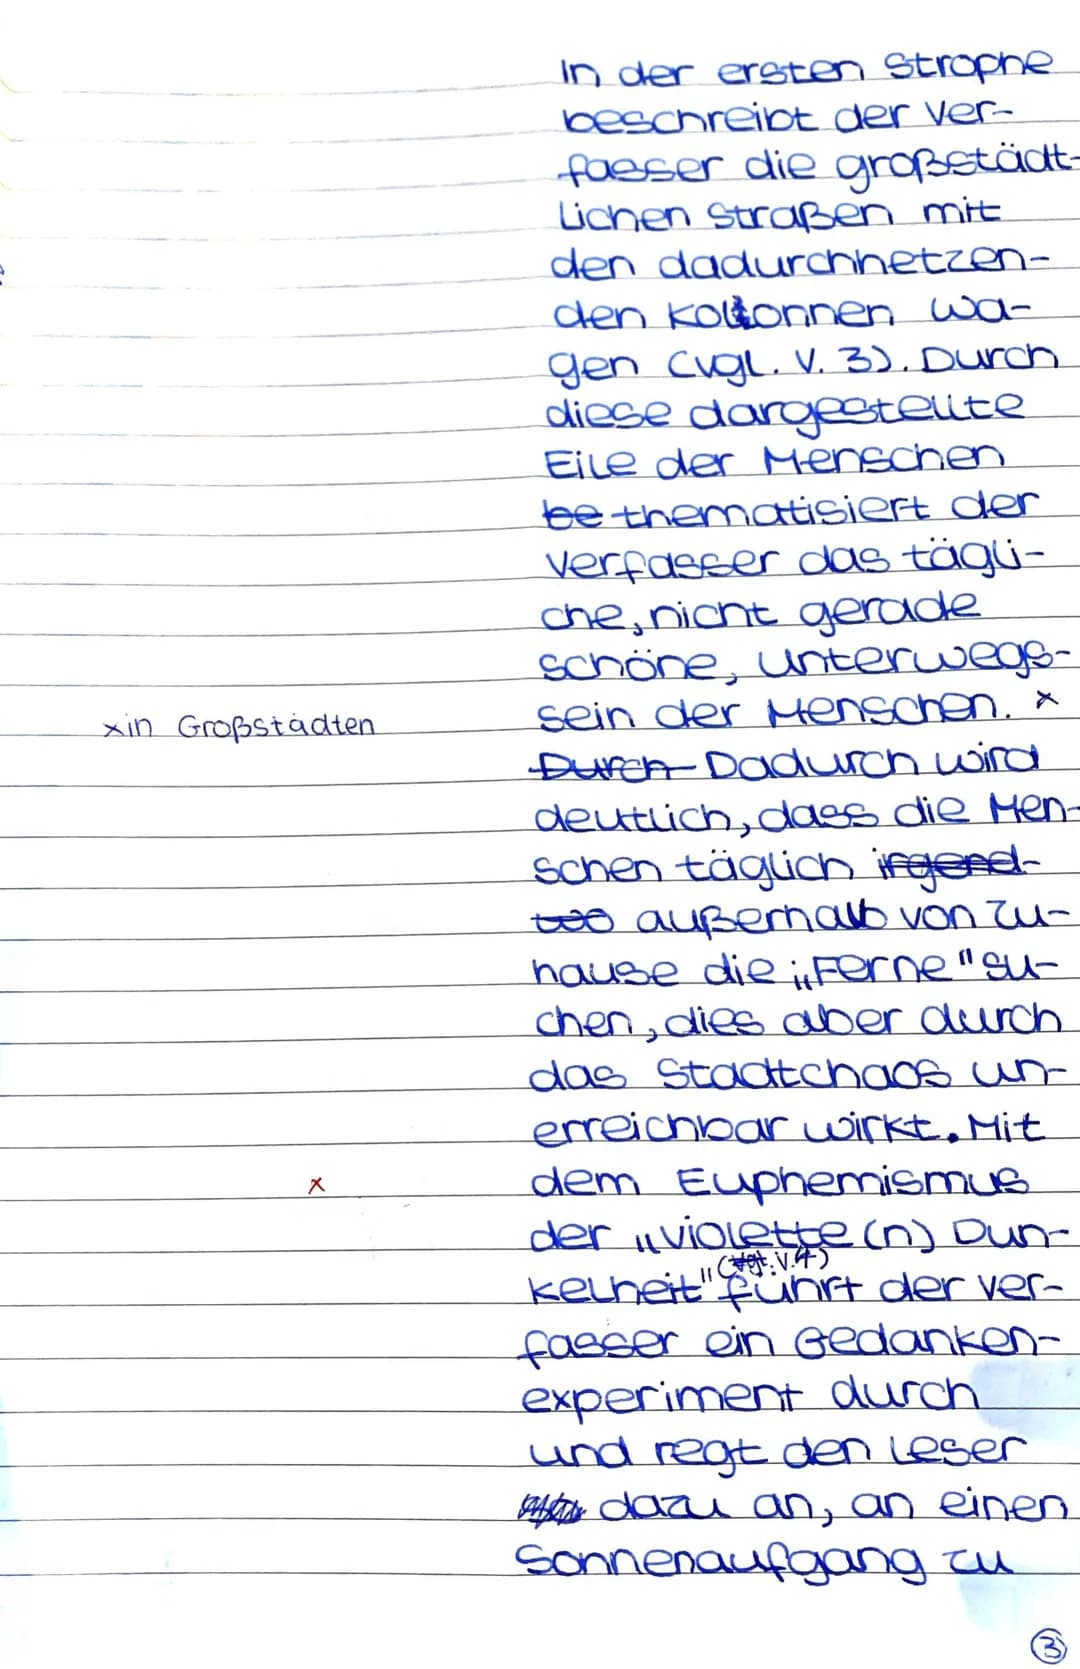 In der ersten Strophe
beschreibt der Ver-
fasser die großstädt-
lichen Straßen mit
den dadurchhetzen-
den Kollonnen Wa-
gen (vgl. V. 3). Durch
diese dargestellte
Eile der Menschen
be thematisiert der
Verfasser das tägli-
che, nicht gerade
schöne, Unterwegs-
sein der Menschen. x
x in Großstädten
Durch Dadurch wird
deutlich, dass die Men-
schen täglich irgend-
wo außerhalb von Zu-
hause die „Ferne" su-
chen, dies aber durch
das Stadtchaos un-
erreichbar wirkt. Mit
x
dem Euphemismus
der „violette(n) Dun-
(vgl. V. 4)
kelheit" führt der Ver-
fasser ein Gedanken-
experiment durch
und regt den Leser
dazu an, an einen
Sonnenaufgang zu
3